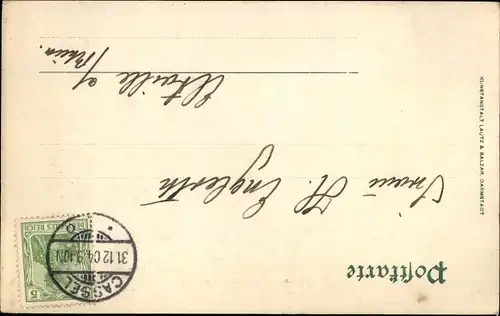 Postkarte
Frau H. Englerth
Eltville a/
Rhein.
DEUTSCHES REICH
5
CASSEL
31.12.04.9-10N
C
KUNSTANSTALT LAUTZ & BALZAR, DARMSTADT